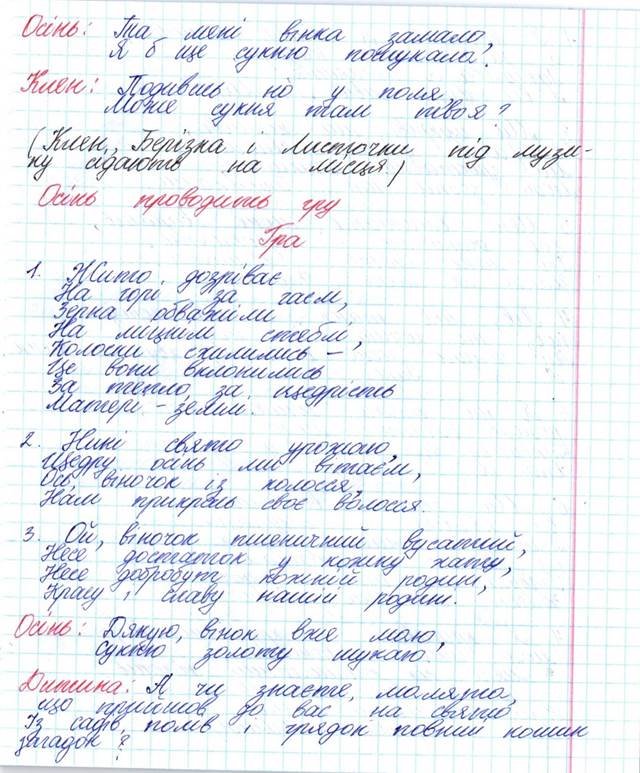 Осінь: Та мені вінка замало,
Я б ще сукню пошукала!
Клен: Подивись но у поля,
Може сукня там твоя?
(Клен, Берізка і Листочки під музи-
ку сідають на місця)
Осінь проводить гру
Гра
1. Жито дозріває
На горі за гаєм,
Зерна обважніли
На міцнім стеблі,
Колоски схилились –
Це вони вклонились
За тепло, за щедрість
Матері – землі.
2. Нині свято урожаю,
Щедру осінь ми вітаєм,
Ось віночок із колосся,
Нам прикрась своє волосся.
3. Ой, віночок пшеничний вусатий,
Несе достаток у кожну хату,
Несе добробут кожній родині,
Красу і славу нашій родині.
Осінь: Дякую, вінок вже маю,
Сукню золоту шукаю!
Дитина: А чи знаєте, малята,
що прийшов до вас на свято
Із садів, полів і грядок повний кошик
загадок?